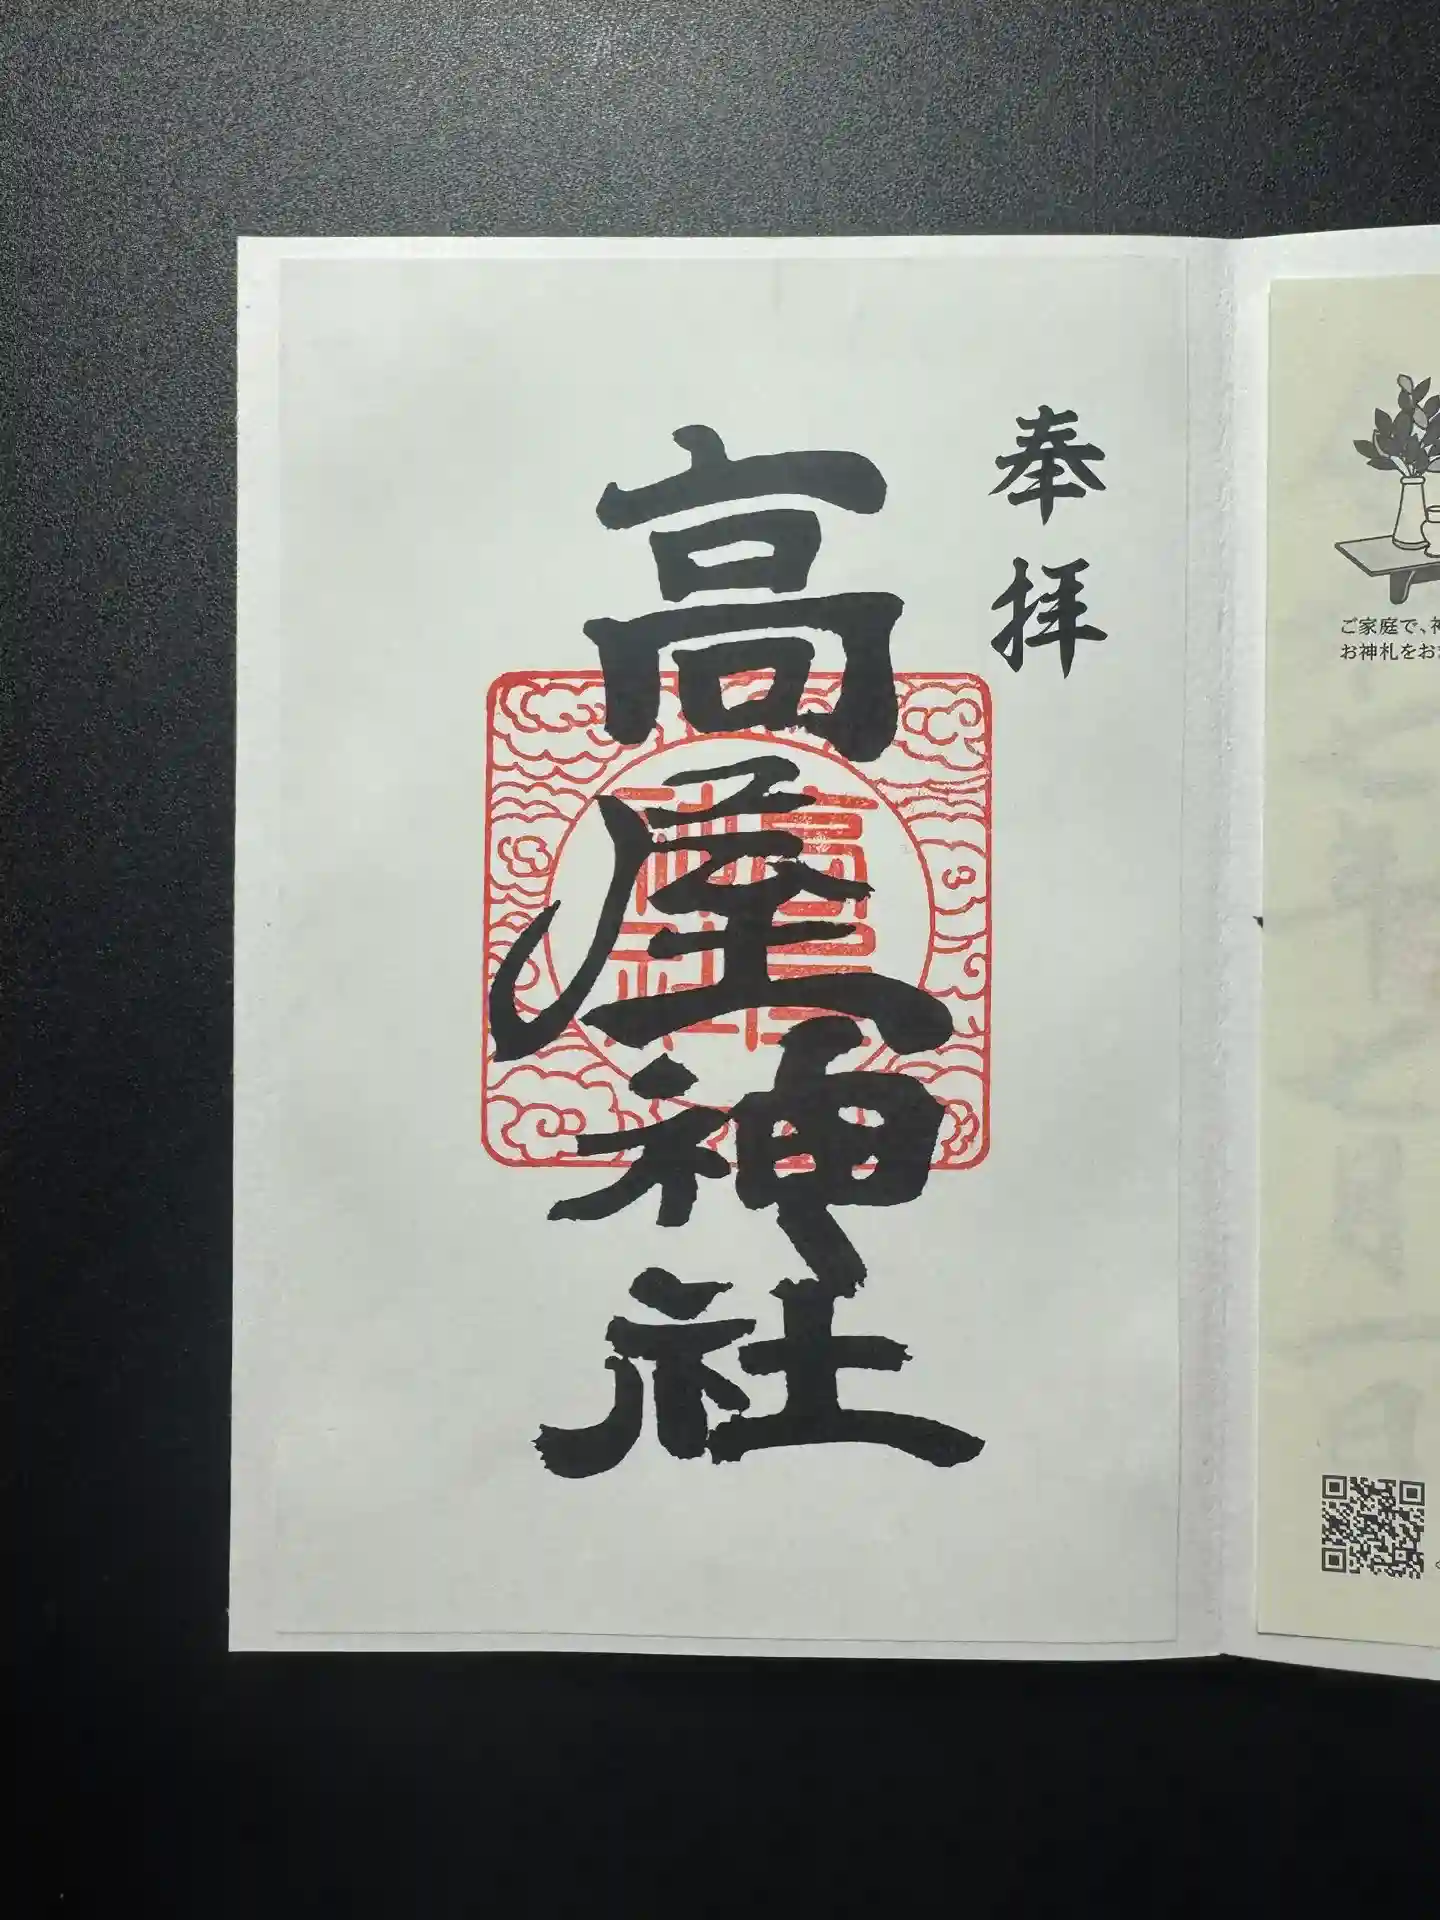 奉拝
高屋神社
高屋神社
ご家庭で、神
お神札をお